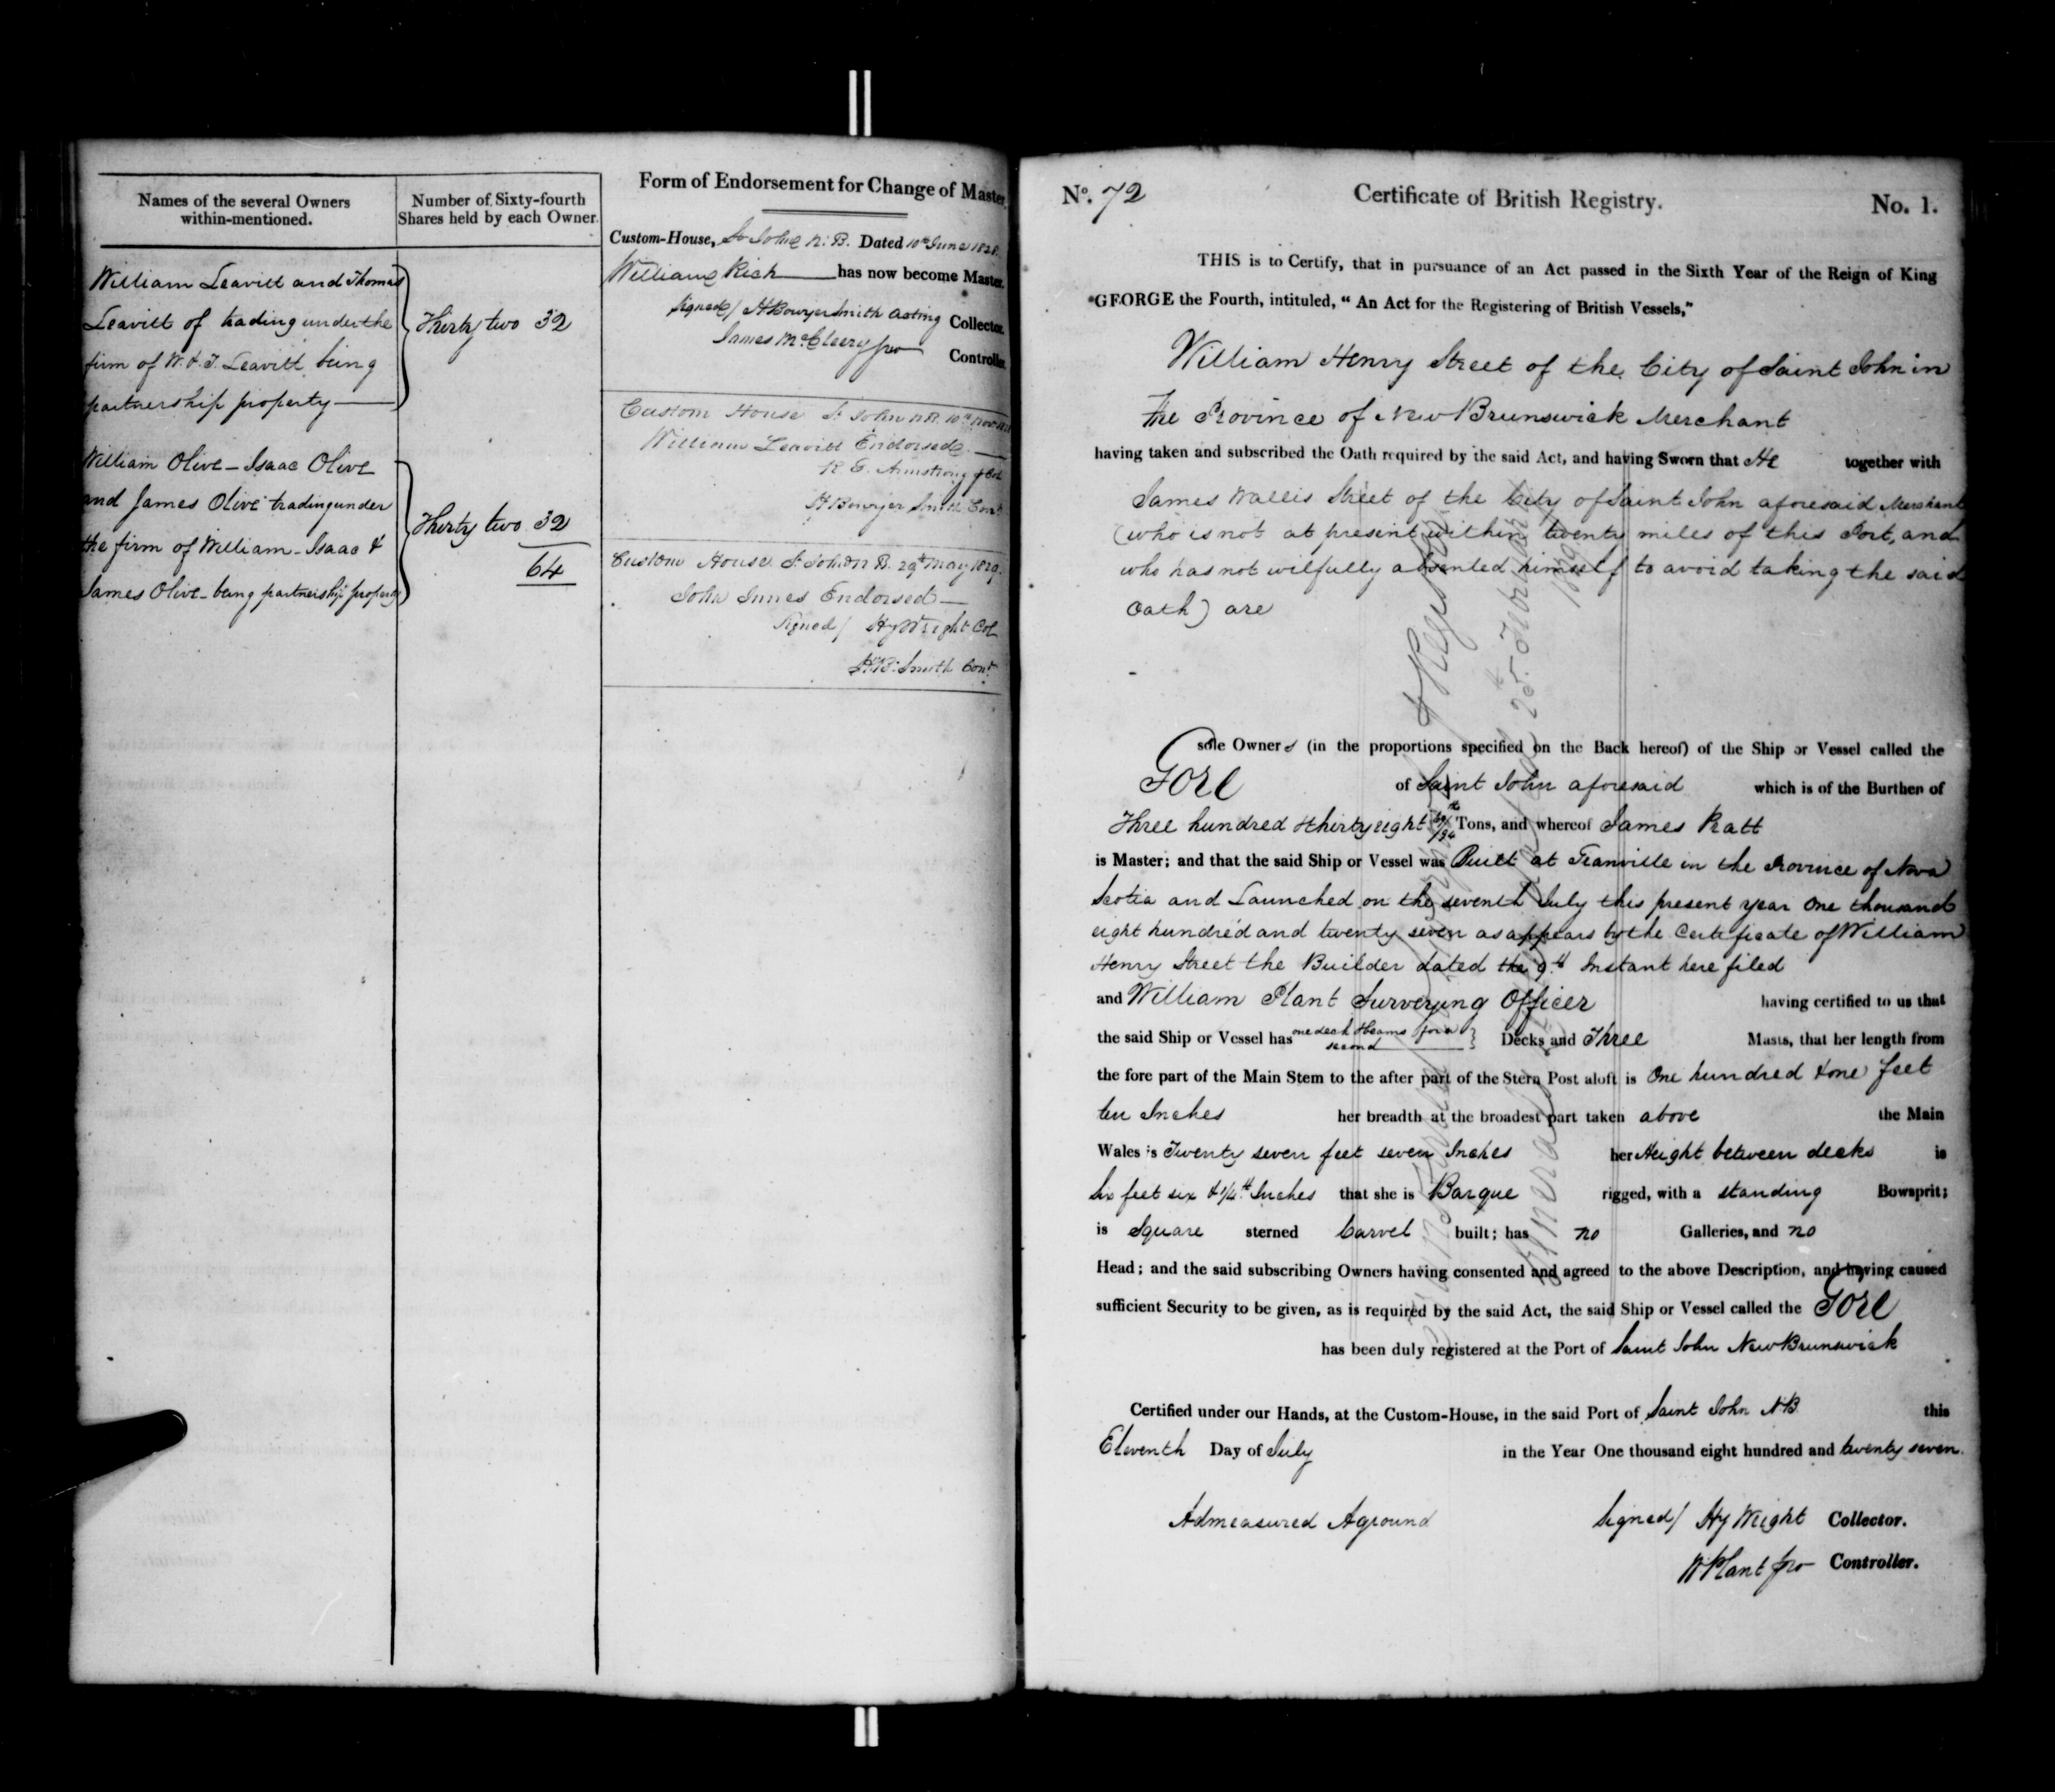 Names of the several Owners
within-mentioned.
Number of Sixty-fourth
Shares held by each Owner.
William Leavitt and Thomas
Leavitt of trading under the
firm of W. & T. Leavitt being
partnership property
Thirty two 32
William Olive - Isaac Olive
and James Olive trading under
the firm of William - Isaac &
James Olive - being partnership property
Thirty two 32
64
Form of Endorsement for Change of Master.
Custom-House, St John N. B. Dated 10th June 1828.
William Rich has now become Master.
Signed / H Bowyer Smith Acting Collector.
James McCleery pro Controller.
Custom House St John N.B. 10th Nov
William Leavitt Endorsed.
R. E. Armstrong Col
H Bowyer Smith Cont
Custom House St John N B. 29th May 1829.
John Innes Endorsed
Signed / Hy Wright Col
H. B. Smith Cont
No. 72
Certificate of British Registry.
No. 1.
THIS is to Certify, that in pursuance of an Act passed in the Sixth Year of the Reign of King
GEORGE the Fourth, intituled, “ An Act for the Registering of British Vessels,”
William Henry Street of the City of Saint John in
the Province of New Brunswick Merchant
having taken and subscribed the Oath required by the said Act, and having Sworn that He together with
James Wallis Street of the City of Saint John aforesaid Merchant
(who is not at present within twenty miles of this Port, and
who has not wilfully absented himself to avoid taking the said
Oath) are
sole Owners (in the proportions specified on the Back hereof) of the Ship or Vessel called the
Gore of Saint John aforesaid which is of the Burthen of
Three hundred & thirty eight Tons, and whereof James Pratt
is Master; and that the said Ship or Vessel was Built at Granville in the Province of Nova
Scotia and Launched on the seventh July this present year One thousand
eight hundred and twenty seven as appears by the Certificate of William
Henry Street the Builder dated the 9th Instant here filed
and William Plant Surveying Officer having certified to us that
the said Ship or Vessel has one deck & beams for a second Decks and Three Masts, that her length from
the fore part of the Main Stem to the after part of the Stern Post aloft is One hundred & one feet
ten Inches her breadth at the broadest part taken above the Main
Wales is Twenty seven feet seven Inches her Height between decks is
Six feet six & 1/4th Inches that she is Barque rigged, with a standing Bowsprit;
is Square sterned Carvel built; has no Galleries, and no
Head; and the said subscribing Owners having consented and agreed to the above Description, and having caused
sufficient Security to be given, as is required by the said Act, the said Ship or Vessel called the Gore
has been duly registered at the Port of Saint John New Brunswick
Certified under our Hands, at the Custom-House, in the said Port of Saint John NB this
Eleventh Day of July in the Year One thousand eight hundred and twenty seven.
Admeasured Aground
Signed / Hy Wright Collector.
W Plant pro Controller.